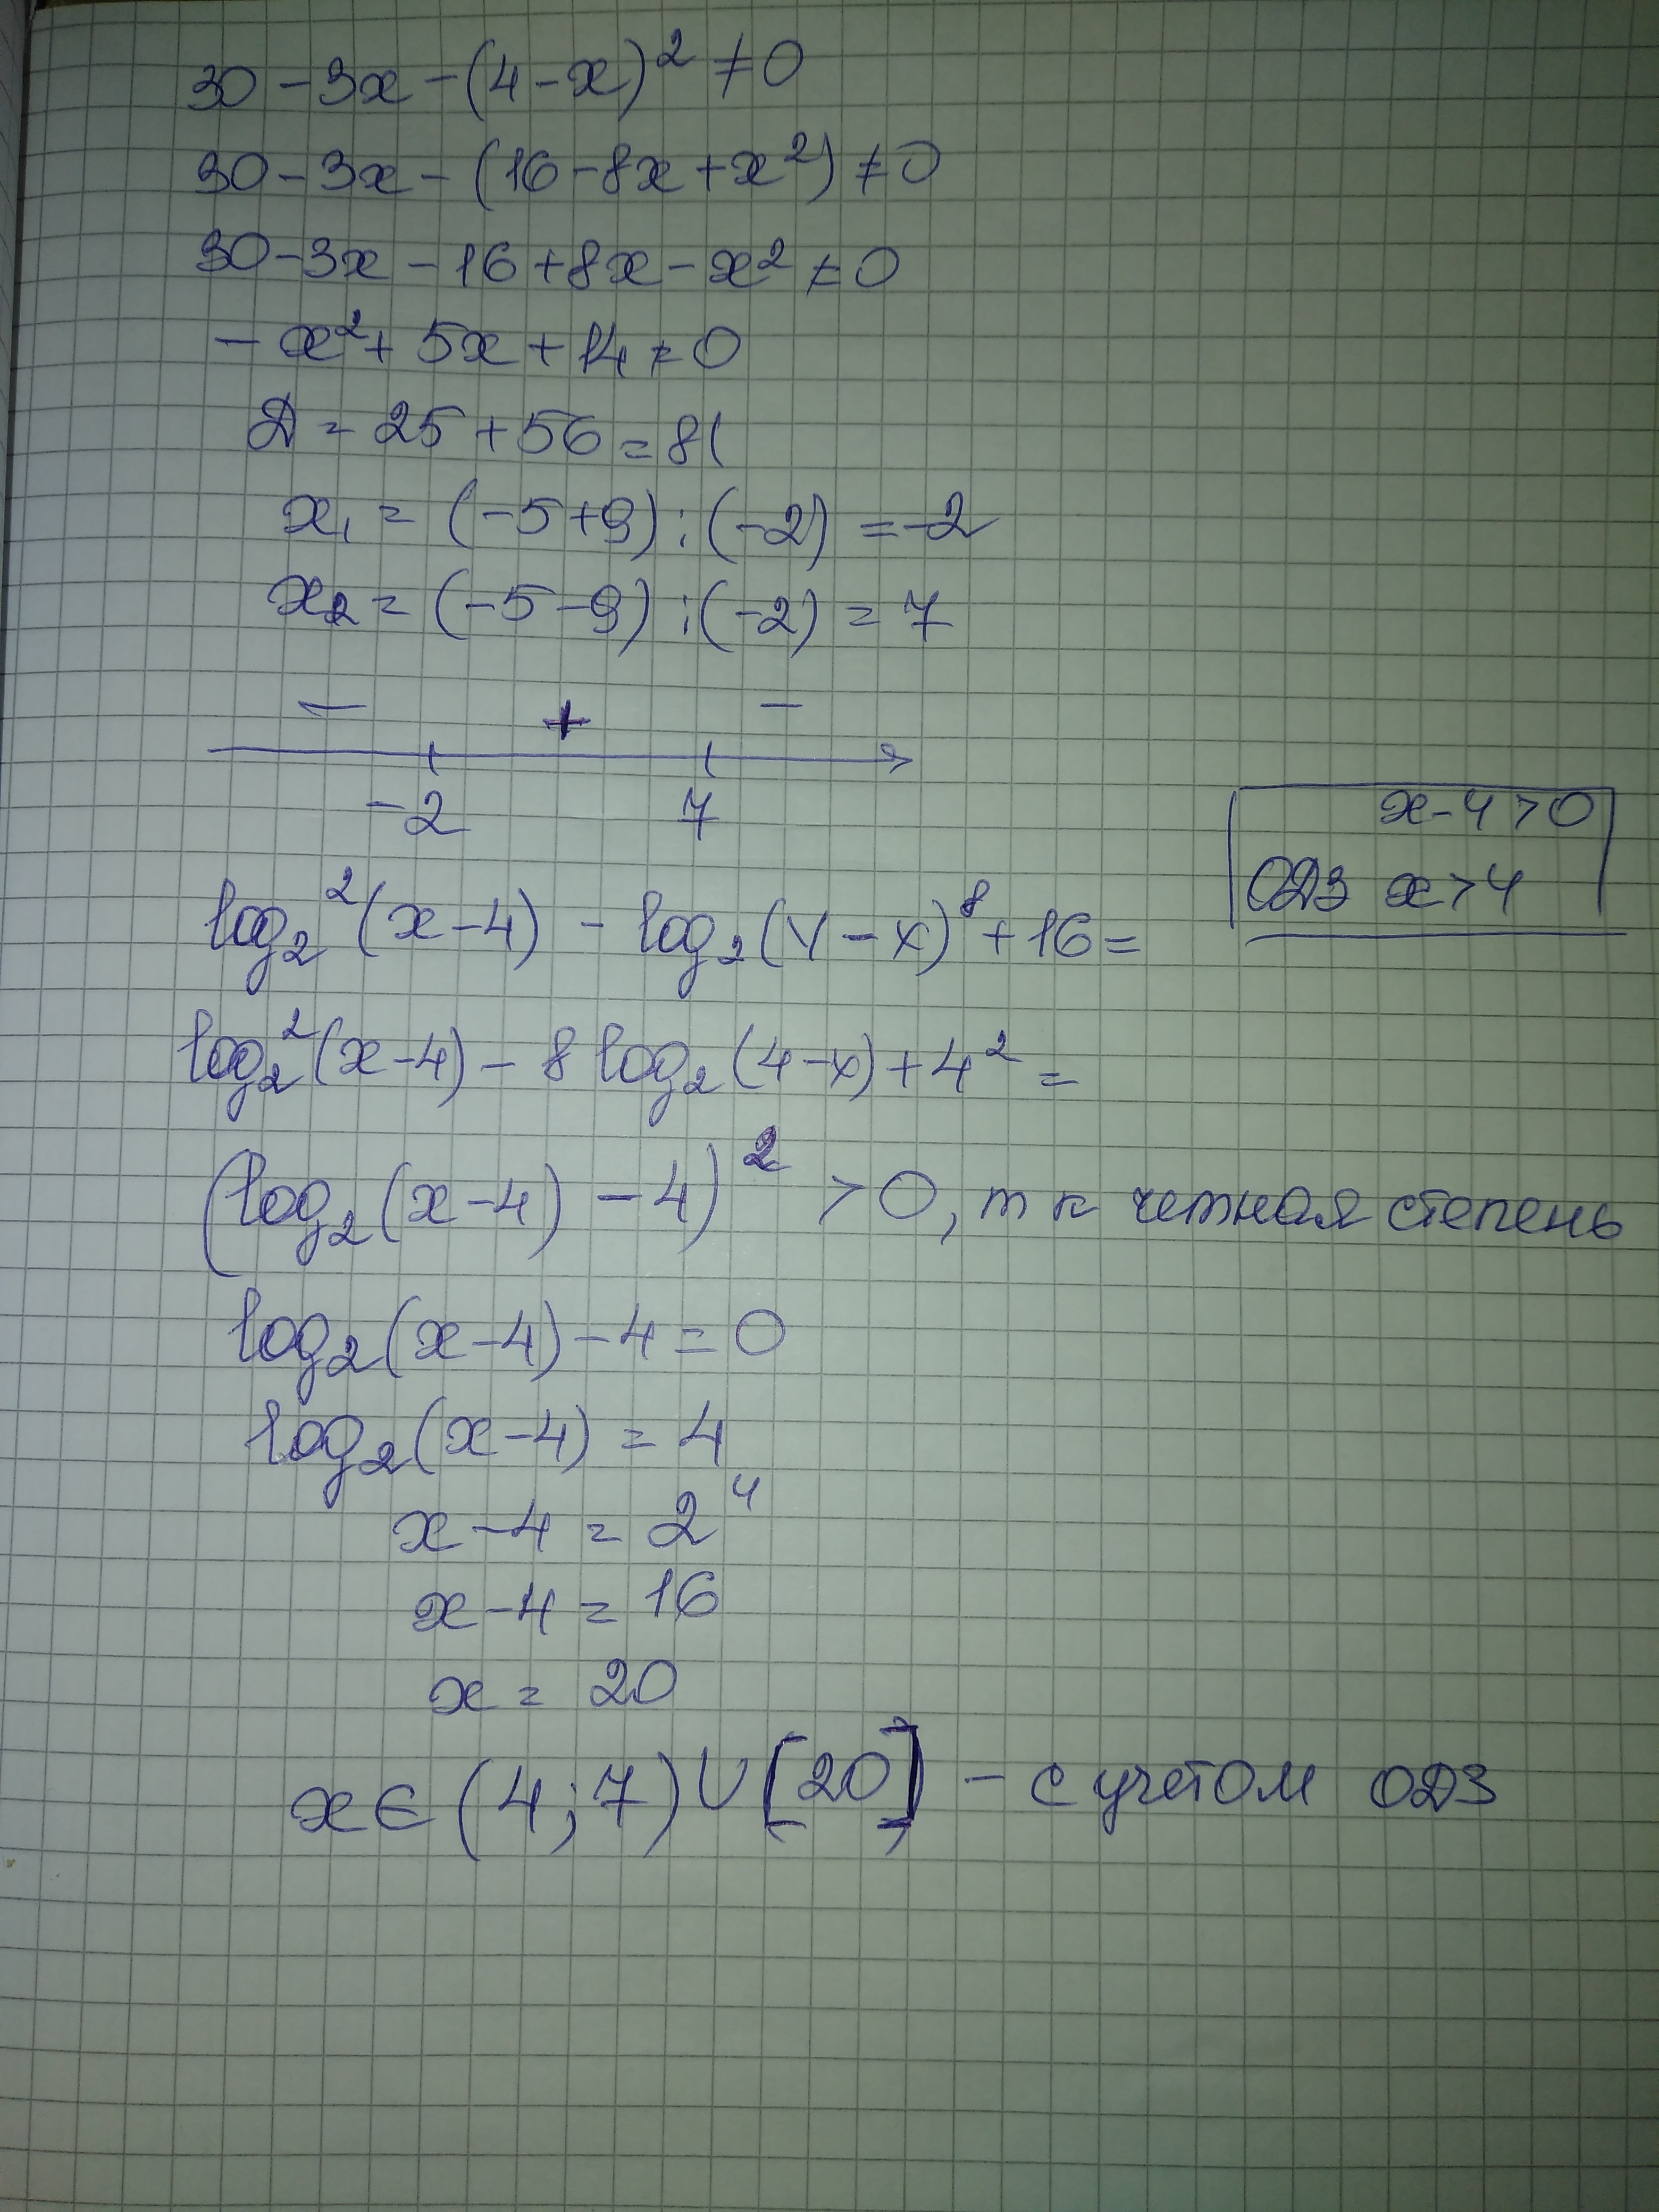 30 - 3x - (4 - x)² ≠ 0
30 - 3x - (16 - 8x + x²) ≠ 0
30 - 3x - 16 + 8x - x² ≠ 0
- x² + 5x + 14 ≠ 0
D = 25 + 56 = 81
x₁ = (-5+9) : (-2) = -2
x₂ = (-5-9) : (-2) = 7
− + −
-2 7
x - 4 > 0
ОДЗ x > 4
log₂²(x-4) - log₂(4-x)⁸ + 16 =
log₂²(x-4) - 8 log₂(4-x) + 4² =
(log₂(x-4) - 4)² > 0, т к четная степень
log₂(x-4) - 4 = 0
log₂(x-4) = 4
x - 4 = 2⁴
x - 4 = 16
x = 20
x ∈ (4; 7) ∪ [20] - с учетом ОДЗ